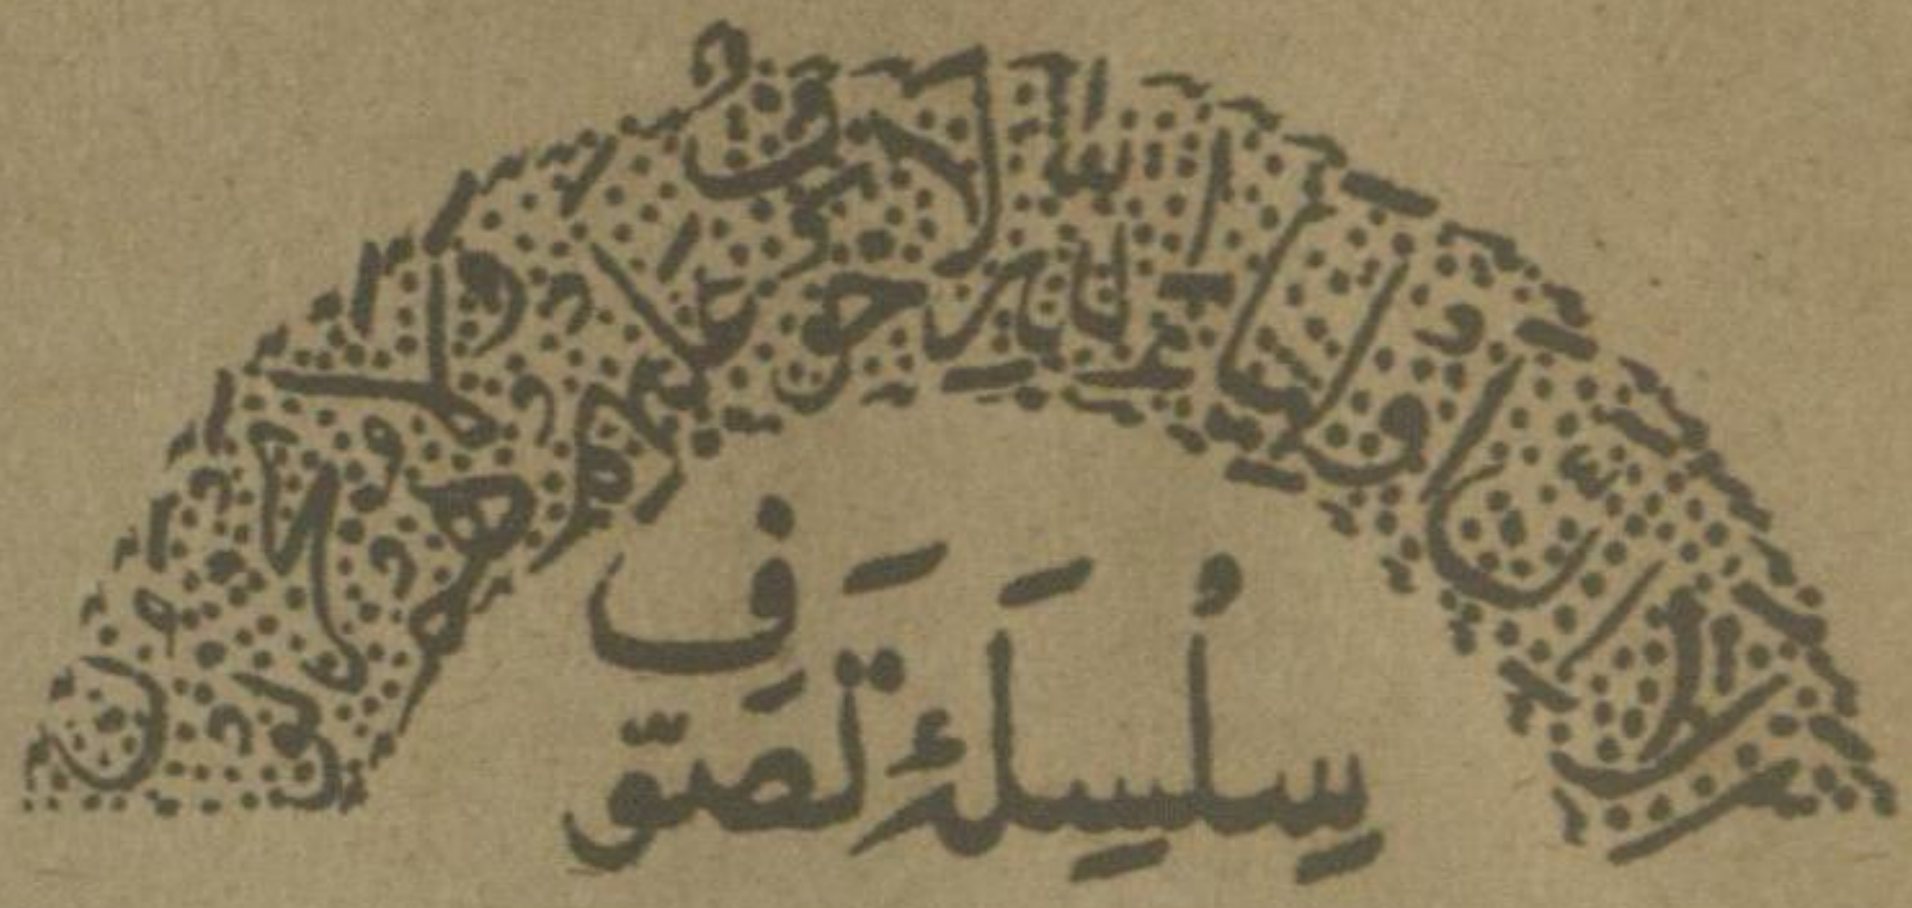 اَلَا اِنَّ اَوْلِيَاءَ اللّٰهِ لَا خَوْفٌ عَلَيْهِمْ وَلَا هُمْ يَحْزَنُوْنَ
سِلْسِلَۂ تَصَوُّف